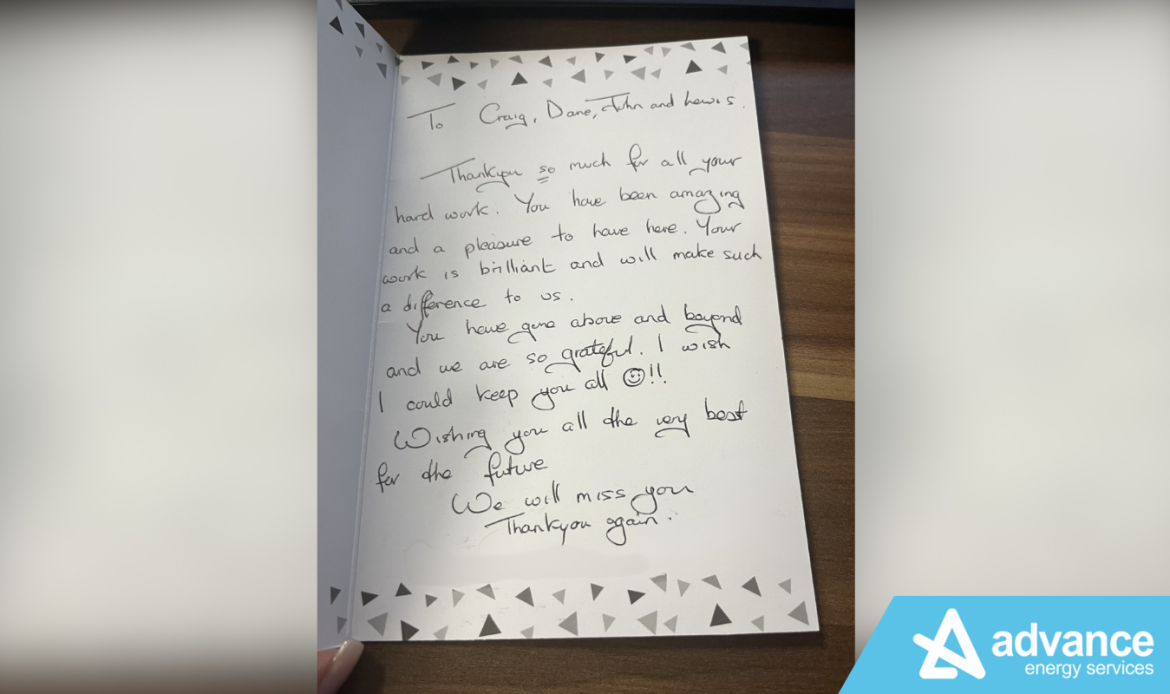 To Craig, Dane, John and Lewis.
Thankyou so much for all your
hard work. You have been amazing
and a pleasure to have here. Your
work is brilliant and will make such
a difference to us.
You have gone above and beyond
and we are so grateful. I wish
I could keep you all ☺!!
Wishing you all the very best
for the future
We will miss you
Thankyou again.
advance
energy services